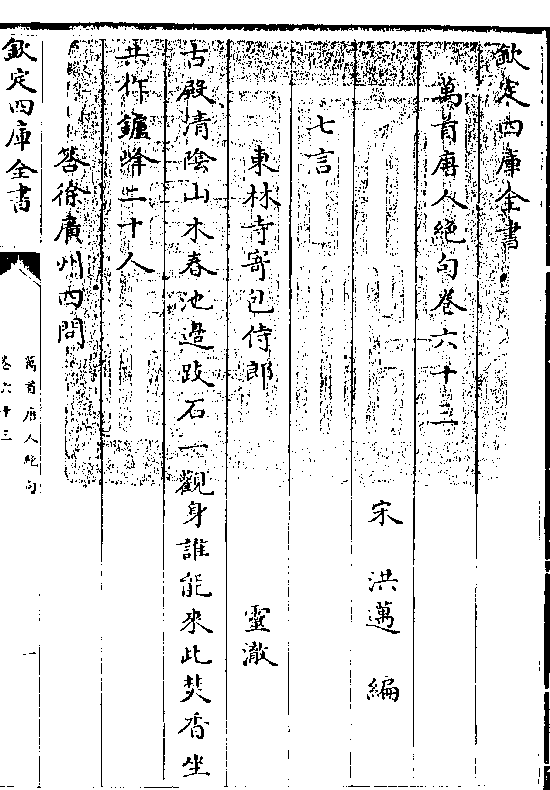 欽定四庫全書
萬首唐人絶句卷六十三
宋 洪邁 編
七言
東林寺寄包侍郎 靈澈
古殿清隂山木春池邉跂石一觀身誰能來此焚香坐
共作鑪峰二十人
答徐廣州四問
欽定四庫全書
萬首唐人絶句
卷六十三
一